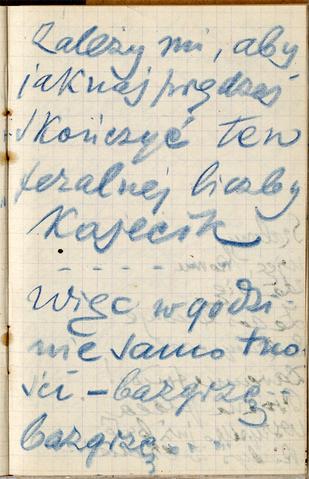 Zależy mi, aby
jaknajprędzej
skończyć ten
feralnej liczby
Kajecik
- - - - - -
więc w godzi-
nie samotno-
ści - bazgrzę,
bazgrzę . . .